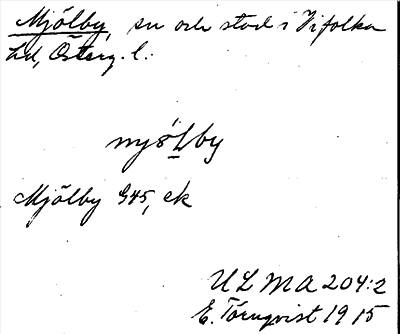 Mjölby, sn och stad i Vifolka
hd, Österg. l.
myölby
Mjölby G45, ek
ULMA 204:2
E. Törnqvist 1915